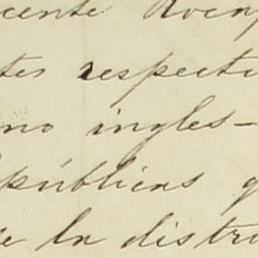 cente
tes respecti
no ingles-
públicas q
e la distr